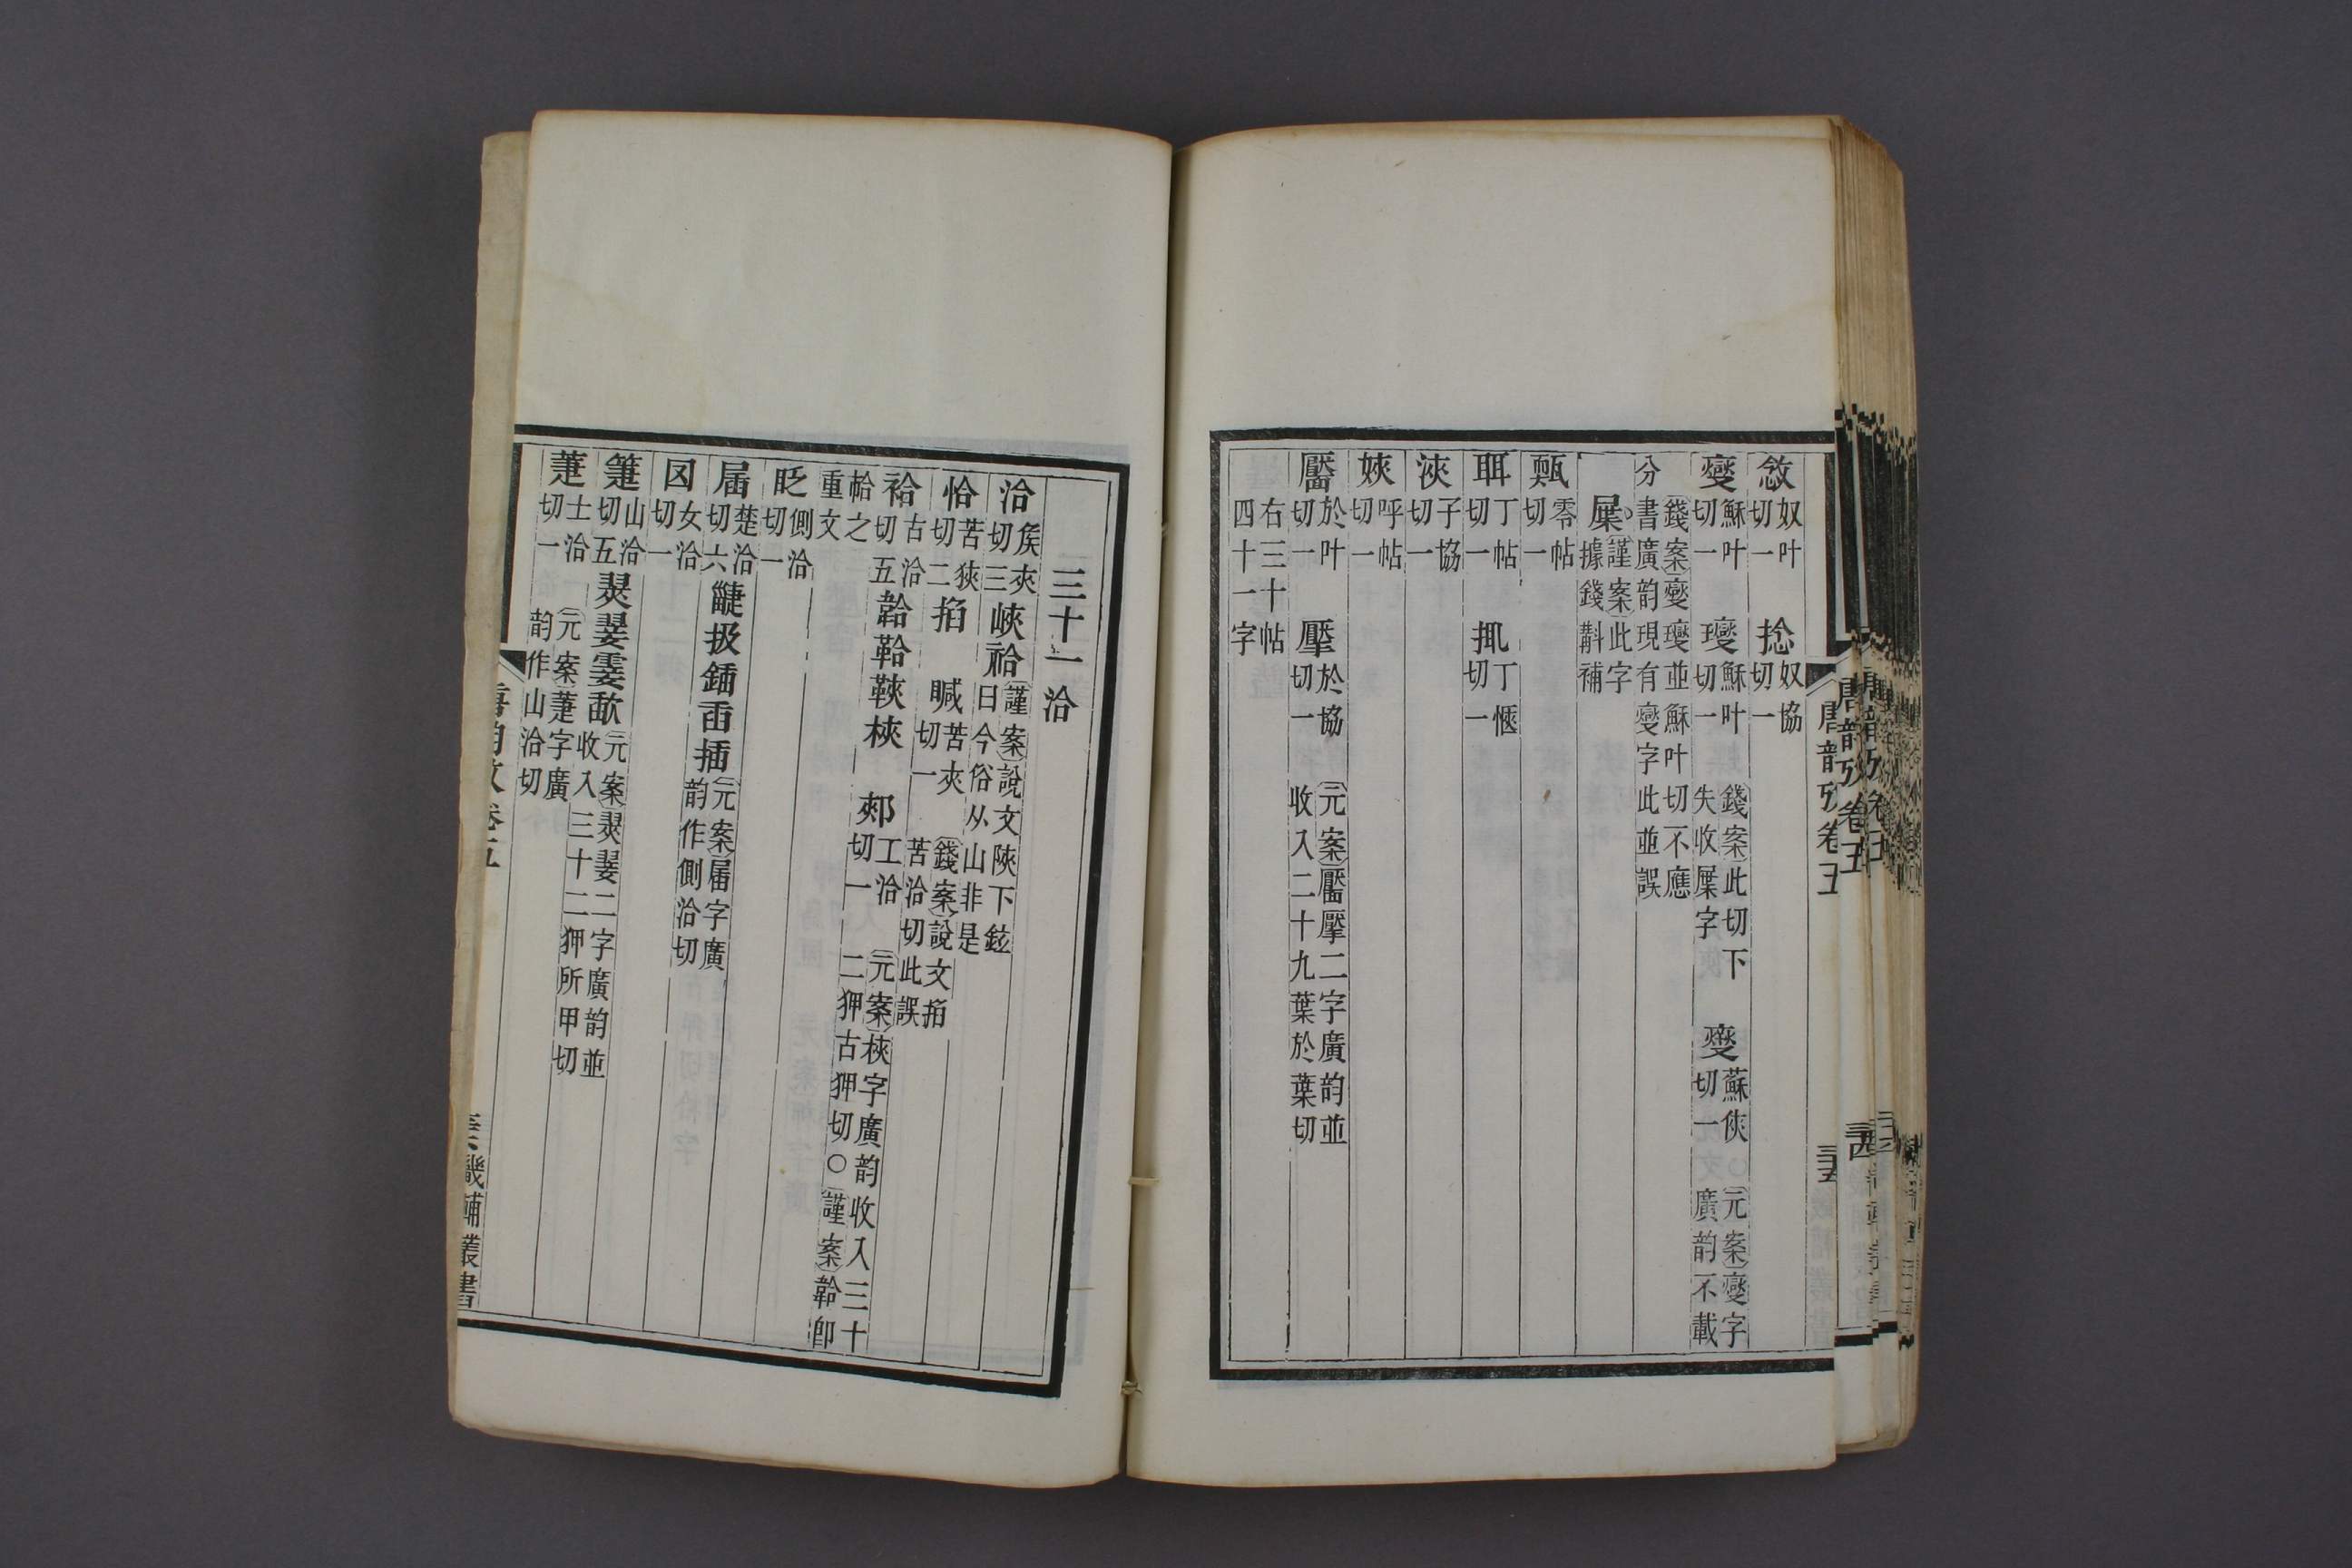 敜奴叶切一 捻奴協切一
燮蘇叶切一 㻉蘇叶切一 錢案此切下失收屧字 變蘇俠切一○元案變字廣韵不載
錢案燮㻉並蘇叶切不應分書廣韵現有燮字此並誤
屧謹案此字據錢斠補
甄零帖切一
耴丁帖切一 㧜丁愜切一
浹子協切一
㛍呼帖切一
靨於叶切一 擪於協切一 元案靨擪二字廣韵並收入二十九葉於葉切
右三十帖四十一字
唐韵攷卷五
三五
三十一洽
洽矦夾切三 峽祫謹案說文陝下鉉曰今俗从山非是
恰苦狹切二 掐 㘎苦夾切一 錢案說文掐苦洽切此誤
袷古洽切五 韐鞈鞅梜 郟工洽切一 元案梜字廣韵收入三十二狎古狎切○謹案韐卽
帢之重文
眨側洽切一
届楚洽切六 㰇扱鍤臿插元案届字廣韵作側洽切
囡女洽切一
箑山洽切五 翜翣霎歃元案翜翣二字廣韵並收入三十二狎所甲切
萐士洽切一 元案萐字廣韵作山洽切
唐韵攷卷五
畿輔叢書